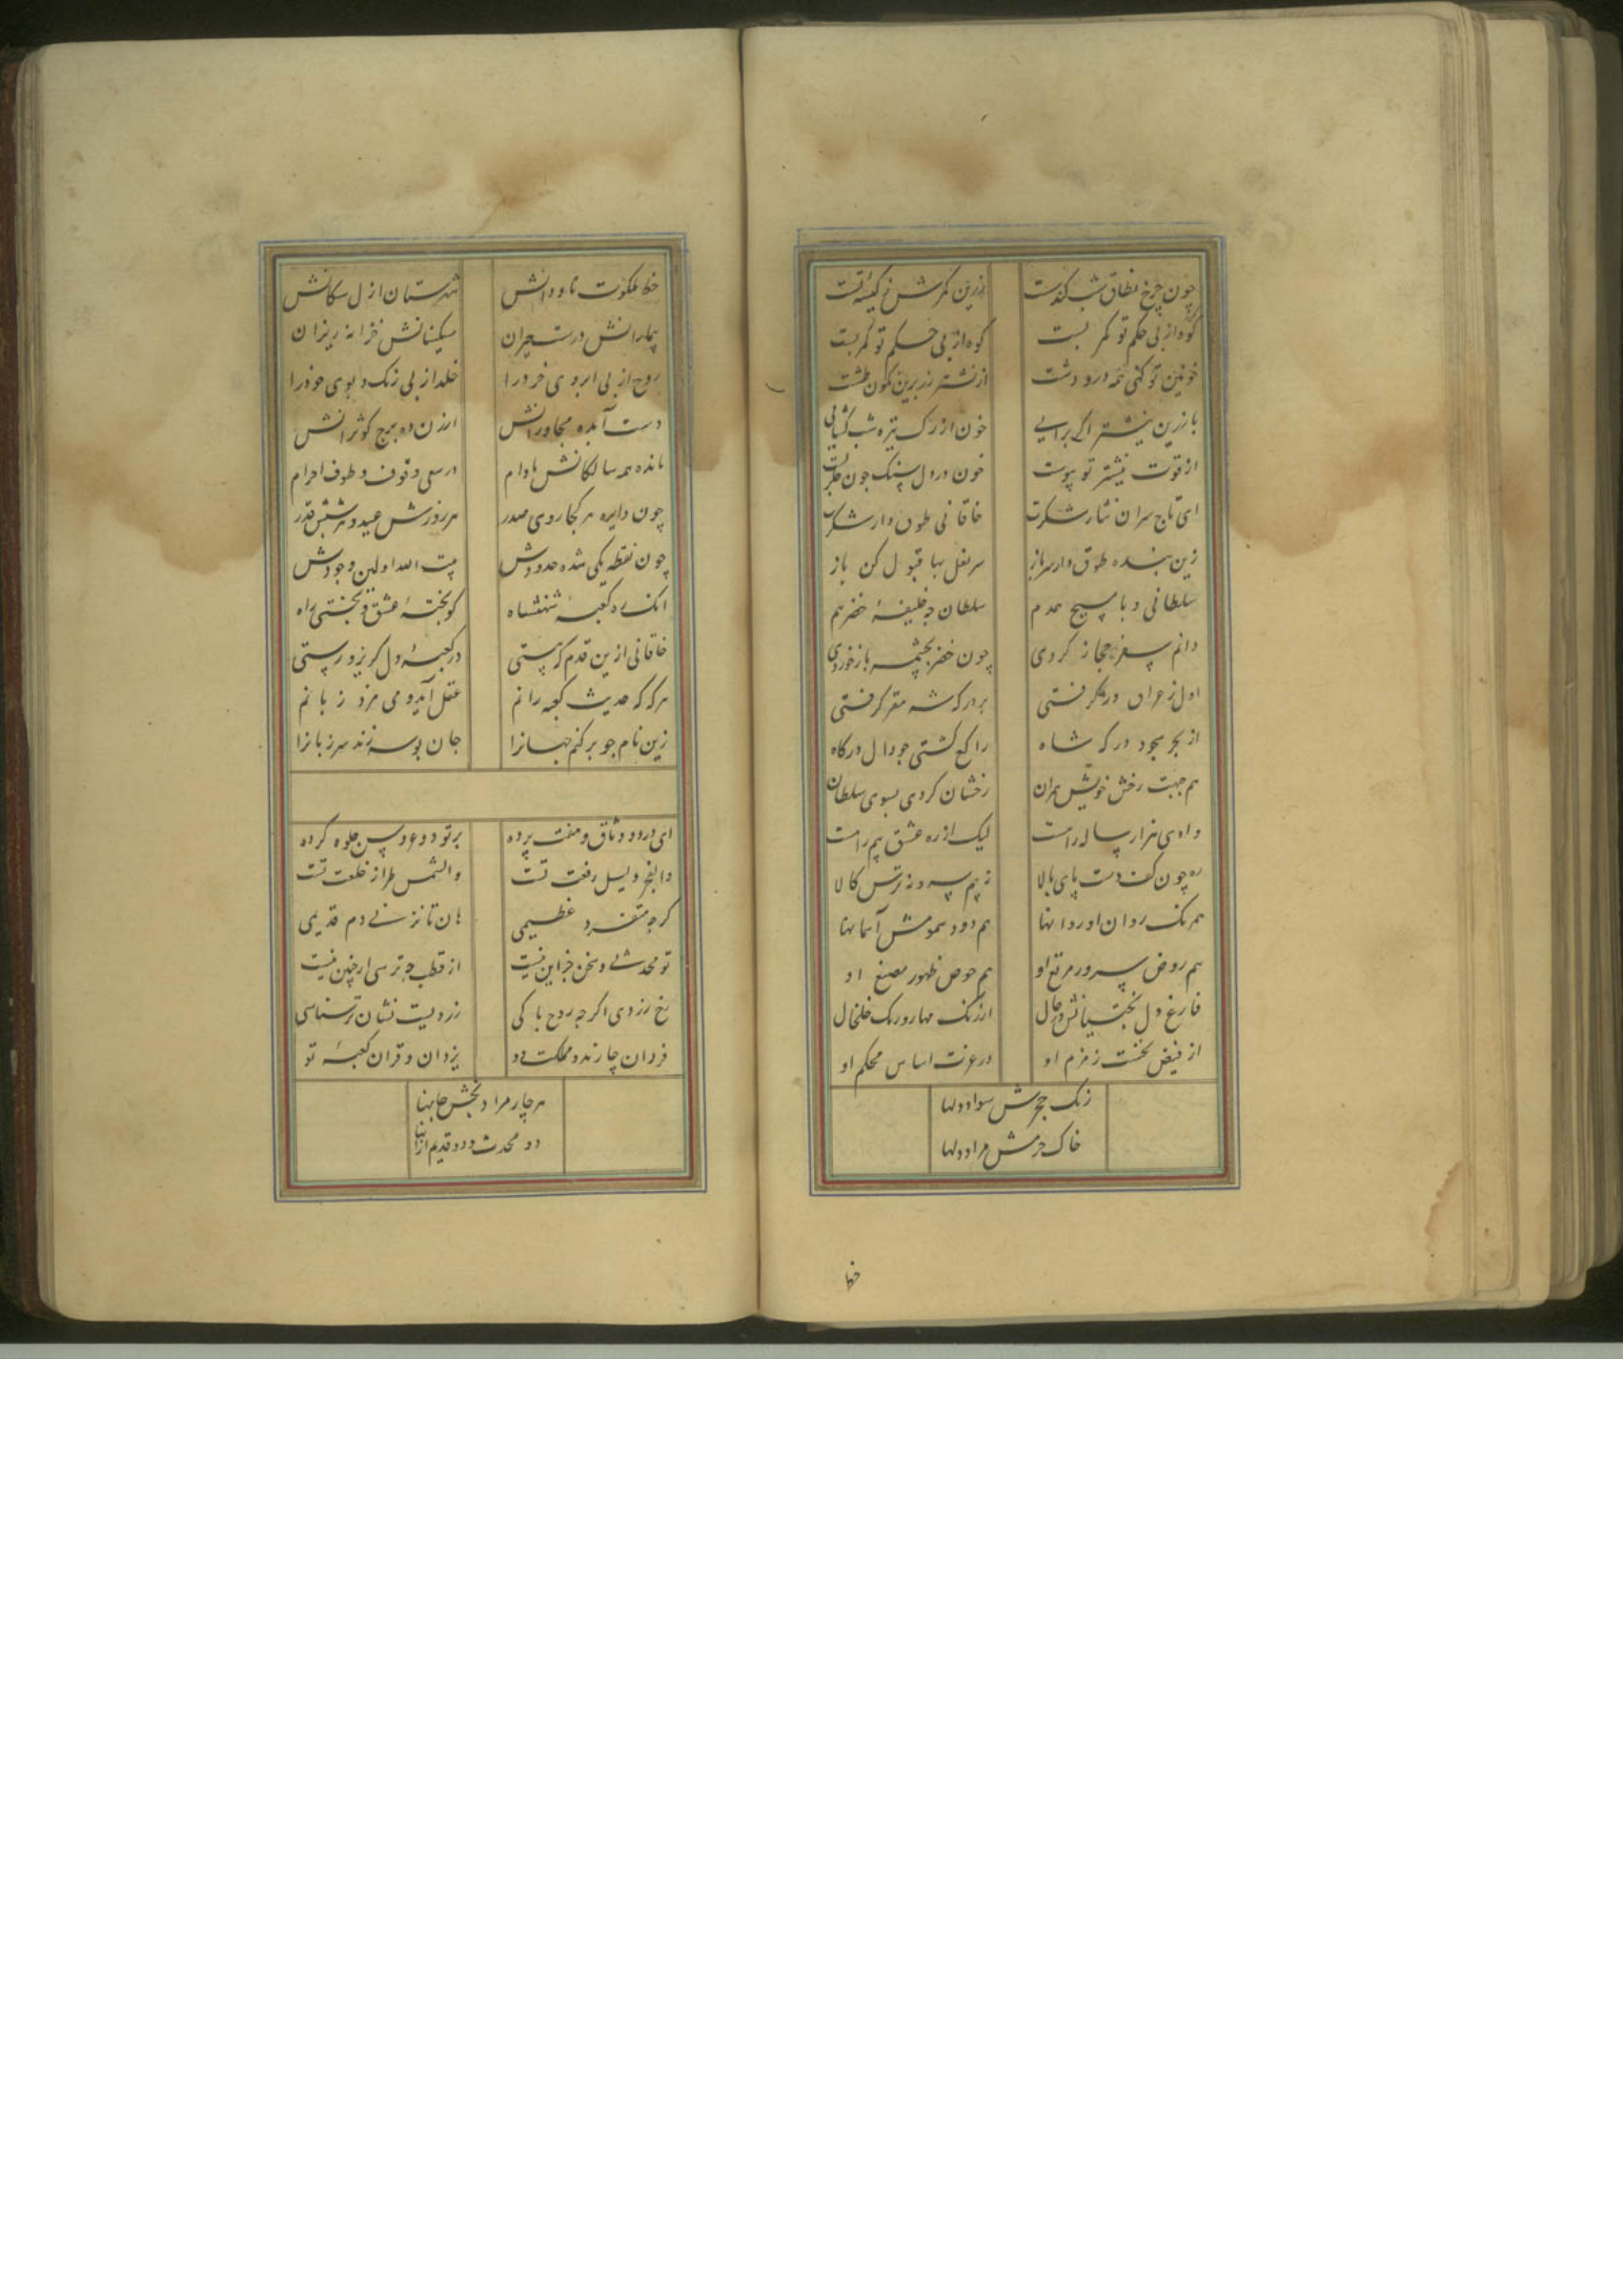 چون چرخ نطاق شب کندست
زرین کمرش ز کیسهٔ تست
کوه از پی حکم تو کمر بست
کوه از پی حکم تو کمر بست
خونین تو کنی همه در و دشت
از نشتر زر برین نکون طشت
با زرین نیشتر اکر برایی
خون از رک تیره شب کشایی
از قوت نیشتر تو پیوست
خون در دل سنک چون جکر بست
ای تاج سران نثار شکرت
خاقانی طوق دار شکرت
زین بنده طوق دار سرباز
سر نعل بها قبول کن باز
سلطانی و با مسیح همدم
سلطان چه خلیفهٔ خضر هم
دانم سفر حجاز کردی
چون خضر بچشمه باز خوردی
اول ز عراق در کرفتی
بر درکه شه مقر کرفتی
از بحر بجود درکه شاه
راکع کشتی چو دال درکاه
هم جهت رخش خویش هم ران
رخشان کردی بسوی سلطان
وادی هزار ساله راهست
لیک از ره عشق نیم راهست
ره چون کف دست پای بالا
نه بیم سپه نه ترس کالا
هم ریک روان او روانها
هم دود سمومش آسمانها
هم روض سرور مرتع او
هم حوض طهور مصنع او
فارغ دل بختیانش در حال
از زنک مهار و رنک خلخال
از فیض نخست زمزم او
در عزت اساس محکم او
رنک حجرش سواد دلها
خاک حرمش مراد دلها
خها
خط ملکوت ناودانش
شهرستان ازل سکانش
بیمارانش درست خیزان
مسکینانش خزانه ریزان
روح از پی ابروی خود را
خلد از پی رنک و بوی خود را
دست آبده مجاورانش
ارزن ده برج کوثرانش
مانده همه سالکانش مادام
در سعی و وقوف و طوف احرام
چون دایره هر کجا روی صدر
هر روزش عید و هر شبش قدر
چون نقطه یکی شده حدودش
بیت الله اولین وجودش
انک ره کعبهٔ شهنشاه
کو بختهٔ عشق و بختی راه
خاقانی ازین قدم که پستی
در کعبهٔ دل کریز و رستی
هرکه که حدیث کعبه رانم
عقل آید و می مزد زبانم
زین نام چو بر کنم جهانرا
جان بوسه زند سر زبانرا
ای در دو وثاق و هفت پرده
بر تو دو عروس جلوه کرده
والفجر و لیل رفعت تست
والشمس طراز خلعت تست
کرچه متفرد عظیمی
هان تا نزنی دم قدیمی
تو محدثی و سخن جز این نیست
از قطب چه ترسی ار چنین نیست
رخ زردی اکرچه روح پاکی
زردیست نشان ترسناکی
فردان چارند و مملکت دو
یزدان و قران کعبه و تو
هر چار مراد بخش جانها
دو محدث و دو قدیم از انها